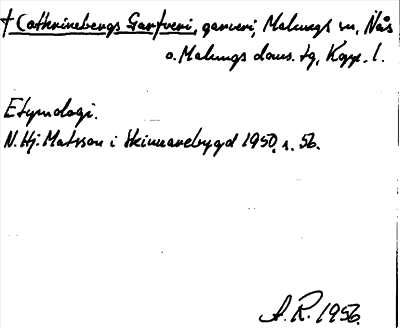 † Catherinebergs Garfveri, garveri, Malungs sn, Nås
o. Malungs doms. tg, Kopp. l.
Etymologi.
N. Hj. Matsson i Skinnarebygd 1950, s. 56.
A. R. 1956.